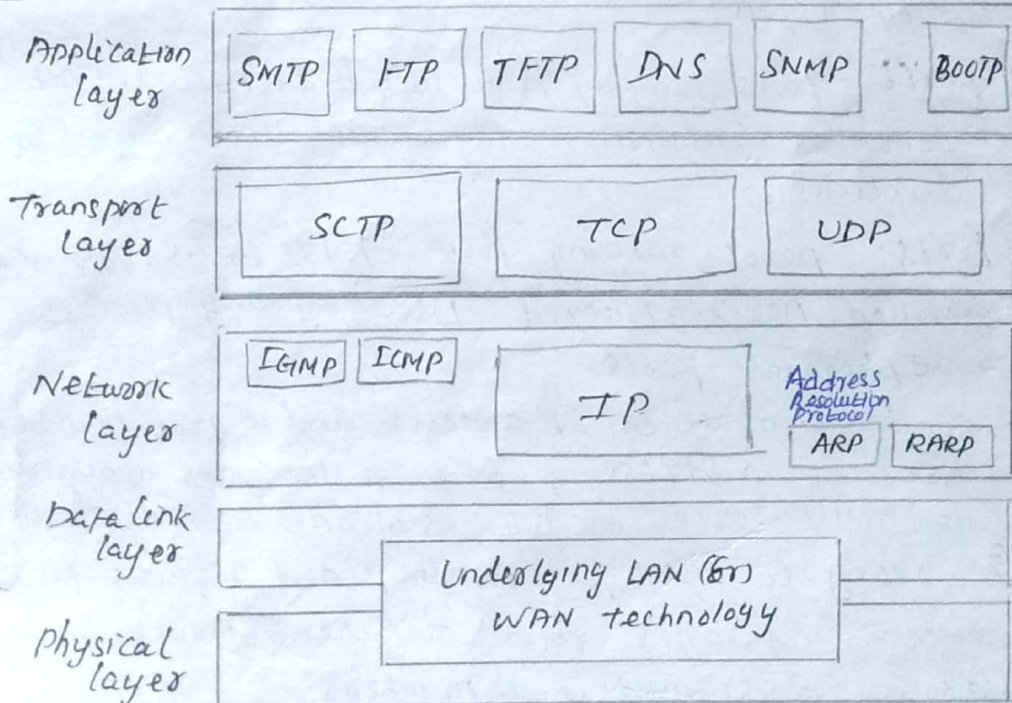 Application
layer
SMTP FTP TFTP DNS SNMP ... BOOTP
Transport
layer
SCTP TCP UDP
Network
layer
IGMP ICMP
IP
Address
Resolution
Protocol
ARP RARP
Data link
layer
Underlying LAN (or)
WAN technology
Physical
layer